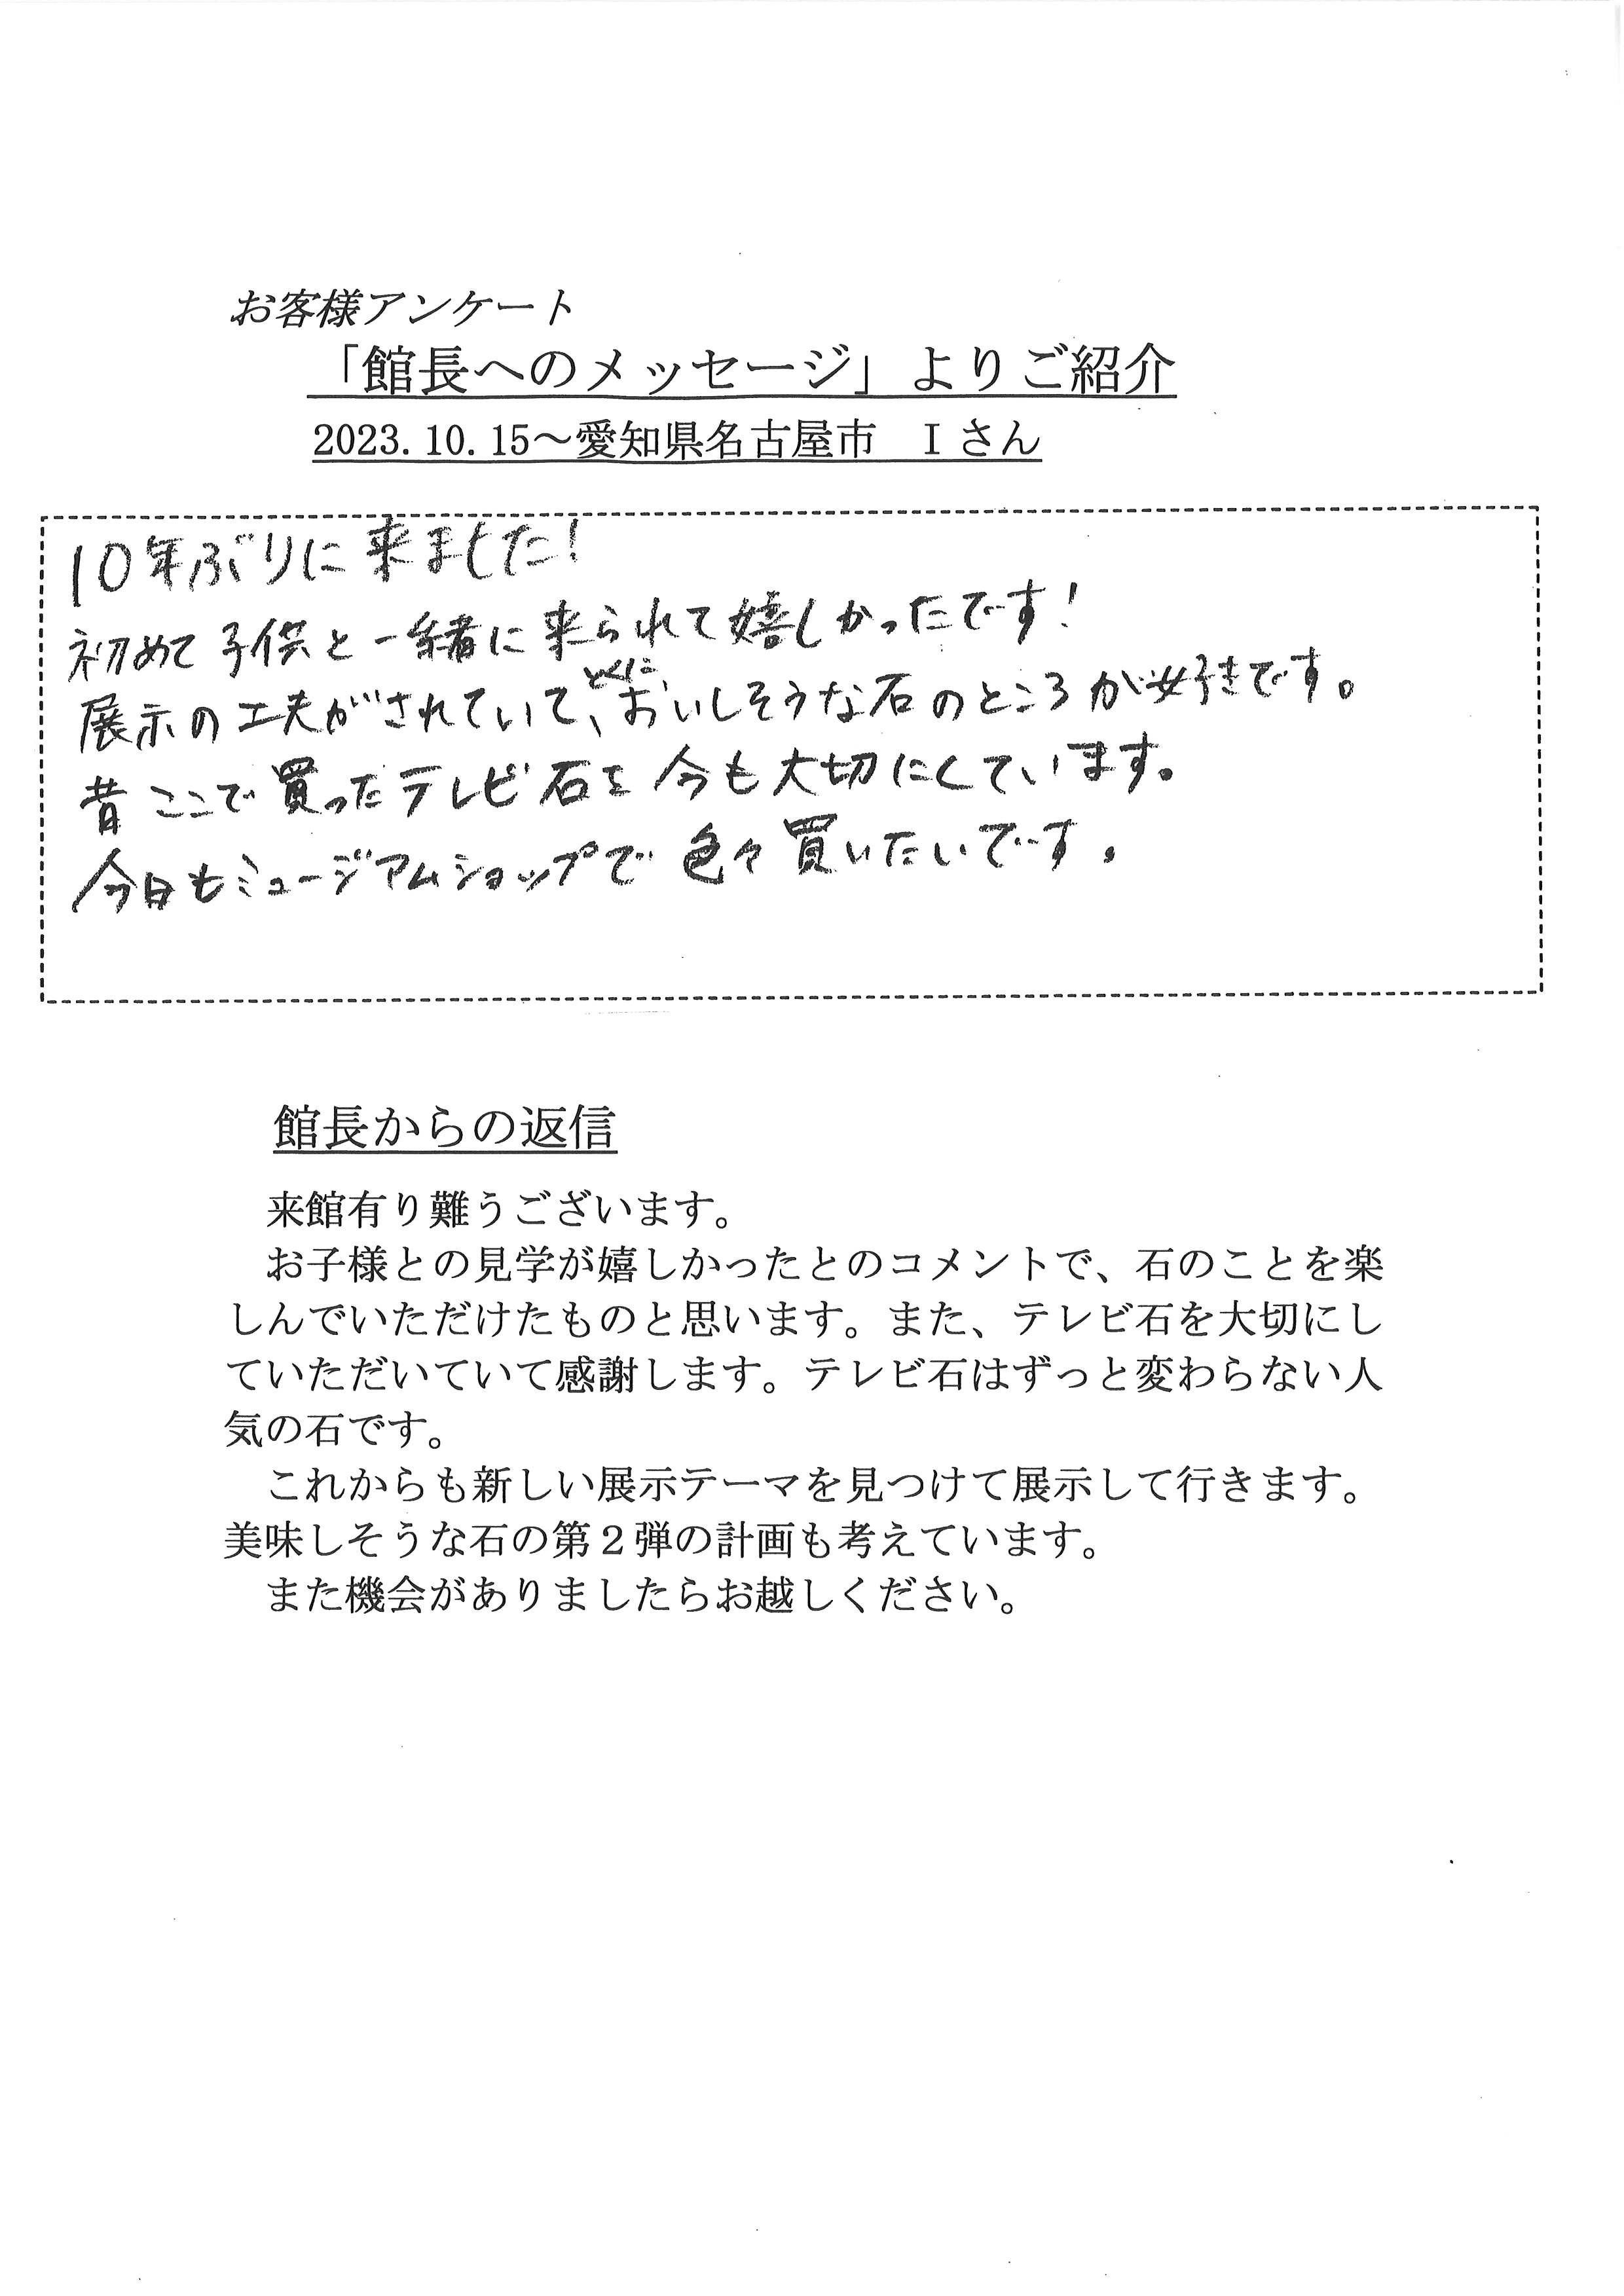 お客様アンケート
「館長へのメッセージ」よりご紹介
2023.10.15～愛知県名古屋市　Iさん
10年ぶりに来ました!
初めて子供と一緒に来られて嬉しかったです!
とくに
展示の工夫がされていて、おいしそうな石のところが好きです。
昔ここで買ったテレビ石を今も大切にしています。
今日もミュージアムショップで色々買いたいです。
館長からの返信
来館有り難うございます。
お子様との見学が嬉しかったとのコメントで、石のことを楽
しんでいただけたものと思います。また、テレビ石を大切にし
ていただいていて感謝します。テレビ石はずっと変わらない人
気の石です。
これからも新しい展示テーマを見つけて展示して行きます。
美味しそうな石の第２弾の計画も考えています。
また機会がありましたらお越しください。